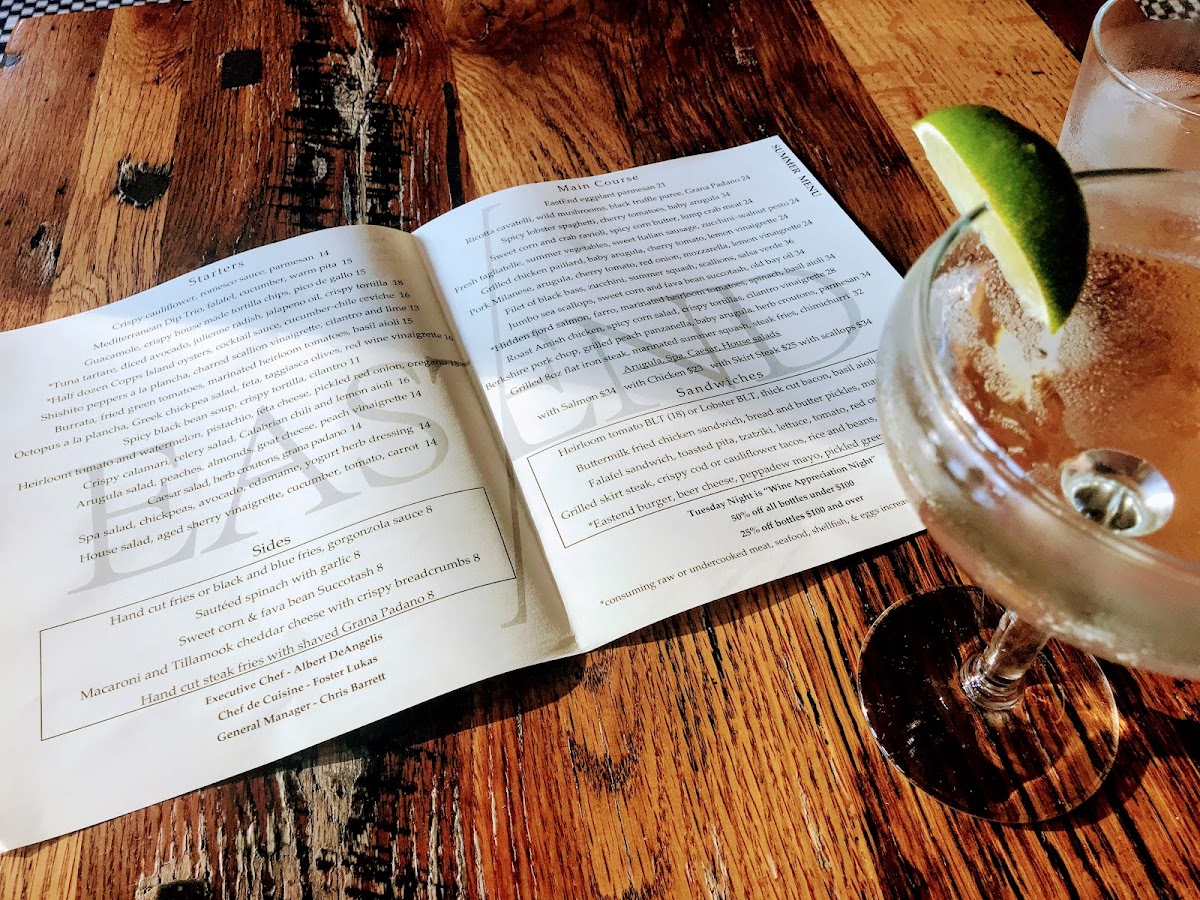 Starters
Crispy cauliflower, romesco sauce, parmesan 14
Mediterranean Dip Trio, falafel, cucumber, warm pita 15
Guacamole, crispy house made tortilla chips, pico de gallo 15
*Tuna tartare, diced avocado, julienne radish, jalapeño oil, crispy tortilla 18
*Half dozen Copps Island oysters, cocktail sauce, cucumber-chile ceviche 16
Shishito peppers a la plancha, charred scallion vinaigrette, cilantro and lime 13
Burrata, fried green tomatoes, marinated heirloom tomatoes, basil aioli 15
Octopus a la plancha, Greek chickpea salad, feta, taggiasca olives, red wine vinaigrette 16
Spicy black bean soup, crispy tortilla, cilantro 11
Heirloom tomato and watermelon, pistachio, feta cheese, pickled red onion, oregano 15
Crispy calamari, celery salad, Calabrian chili and lemon aioli 16
Arugula salad, peaches, almonds, goat cheese, peach vinaigrette 14
Caesar salad, herb croutons, grana padana 14
Spa salad, chickpeas, avocado, edamame, yogurt herb dressing 14
House salad, aged sherry vinaigrette, cucumber, tomato, carrot 14
Sides
Hand cut fries or black and blue fries, gorgonzola sauce 8
Sautéed spinach with garlic 8
Sweet corn & fava bean Succotash 8
Macaroni and Tillamook cheddar cheese with crispy breadcrumbs 8
Hand cut steak fries with shaved Grana Padano 8
Executive Chef - Albert DeAngelis
Chef de Cuisine - Foster Lukas
General Manager - Chris Barrett
EASTEND
SUMMER MENU
Main Course
EastEnd eggplant parmesan 21
Ricotta cavatelli, wild mushrooms, black truffle puree, Grana Padano 24
Spicy lobster spaghetti, cherry tomatoes, baby arugula 34
Sweet corn and crab ravioli, spicy corn butter, lump crab meat 24
Fresh tagliatelle, summer vegetables, sweet Italian sausage, zucchini-walnut pesto 24
Grilled chicken paillard, baby arugula, cherry tomato, lemon vinaigrette 24
Pork Milanese, arugula, cherry tomato, red onion, mozzarella, lemon vinaigrette 24
Filet of black bass, zucchini, summer squash, scallions, salsa verde 36
Jumbo sea scallops, sweet corn and fava bean succotash, old bay oil 34
*Hidden fjord salmon, farro, marinated heirloom tomatoes, spinach, basil aioli 34
Roast Amish chicken, spicy corn salad, crispy tortillas, cilantro vinaigrette 28
Berkshire pork chop, grilled peach panzanella, baby arugula, herb croutons, parm 34
Grilled 8oz flat iron steak, marinated summer squash, steak fries, chimichurri 32
Arugula, Spa, Caesar, House salads
with Salmon $34 with Chicken $23 with Skirt Steak $25 with scallops $34
Sandwiches
Heirloom tomato BLT (18) or Lobster BLT, thick cut bacon, basil aioli
Buttermilk fried chicken sandwich, bread and butter pickles,
Falafel sandwich, toasted pita, tzatziki, lettuce, tomato, red
Grilled skirt steak, crispy cod or cauliflower tacos, rice and beans,
*Eastend burger, beer cheese, peppadew mayo, pickled
Tuesday Night is "Wine Appreciation Night"
50% off all bottles under $100
25% off bottles $100 and over
*consuming raw or undercooked meat, seafood, shellfish, & eggs